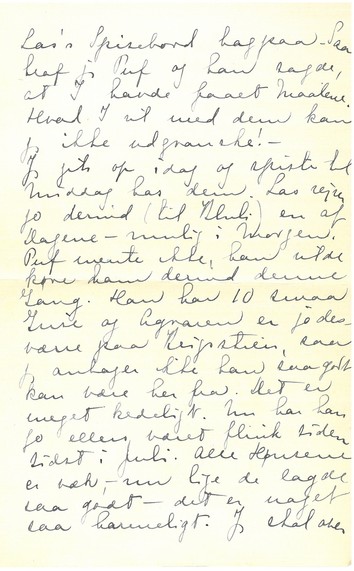 Las's Spisebord bagpaa - Saa
traf jeg Puf og han sagde,
at I havde faaet Maalene.
Hvad I vil med dem kan
jeg ikke udgranske! -
Jeg gik op i dag og spiste til
Middag hos dem. Las rejser
jo derind (til Kluli) en af
Dagene - mulig i Morgen.
Puf mente ikke, han vilde
køre ham derind denne
Gang. Han har 10 smaa
Grise og Agraren er jo des-
værre paa Krigsstien, saa
jeg antager ikke han saa godt
kan være her fra. Det er
meget kedeligt. Nu har han
jo ellers været flink siden
sidst i Juli. Alle Hønsene
er væk, - nu lige de lagde
saa godt - det er noget
saa harmeligt. Jeg skal over